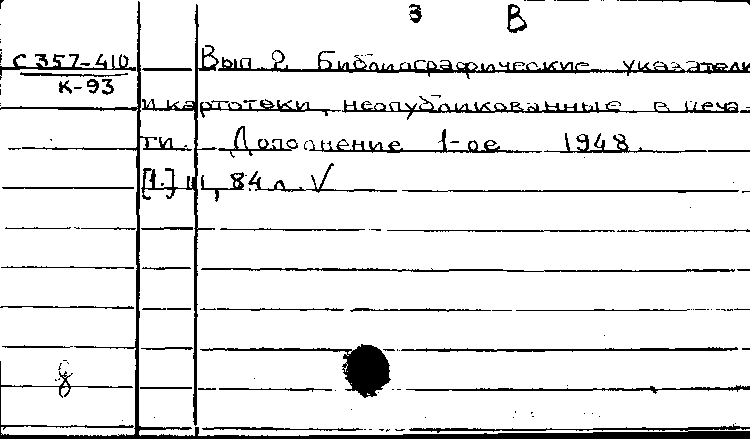 3 В
С 357-410
К-93
Вып. 2. Библиографические указатели
и картотеки, неопубликованные в печа-
ти. Дополнение 1-ое 1948.
[1.] III, 84 л. V